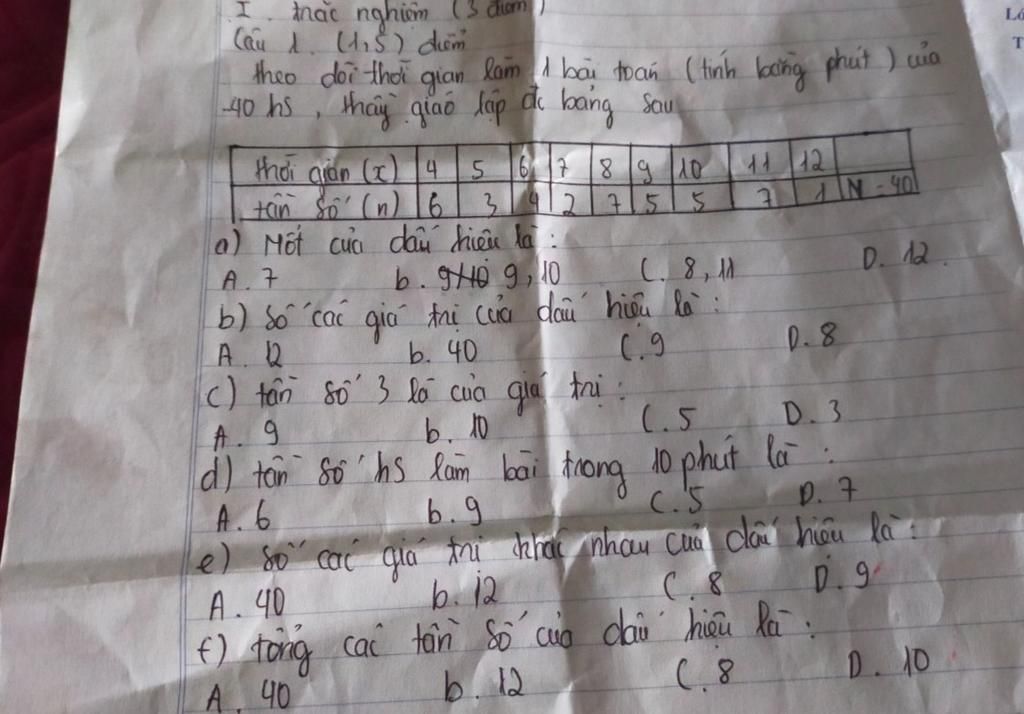 I. trắc nghiệm (3 điểm)
Câu 1. (1,5) điểm
theo dõi thời gian làm 1 bài toán (tính bằng phút) của
40 hs, thầy giáo lập đc bảng sau
thời gian (x) 4 5 6 7 8 9 10 11 12
tần số (n) 6 3 4 2 7 5 5 7 1 N = 40
a) Mốt của dấu hiệu là:
A. 7 b. 9, 10 C. 8, 11 D. 12.
b) Số các giá trị của dấu hiệu là:
A. 12 b. 40 C. 9 D. 8
c) tần số 3 là của giá trị:
A. 9 b. 10 C. 5 D. 3
d) tần số hs làm bài trong 10 phút là:
A. 6 b. 9 C. 5 D. 7
e) số các giá trị khác nhau của dấu hiệu là:
A. 40 b. 12 C. 8 D. 9
f) tổng các tần số của dấu hiệu là:
A. 40 b. 12 C. 8 D. 10